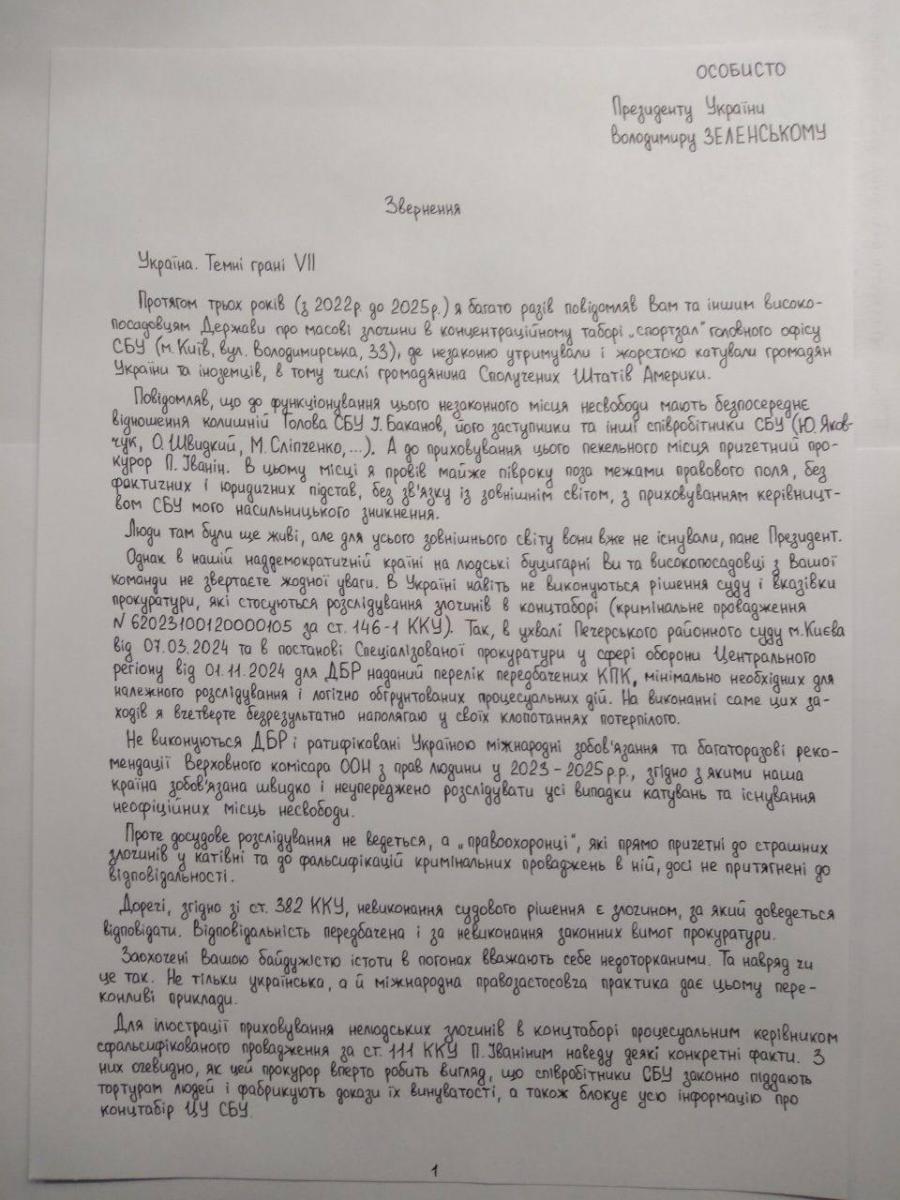 ОСОБИСТО
Президенту України
Володимиру ЗЕЛЕНСЬКОМУ
Звернення
Україна. Темні грані VII
Протягом трьох років (з 2022р. до 2025р.) я багато разів повідомляв Вам та іншим високо-
посадовцям Держави про масові злочини в концентраційному таборі „спортзал" головного офісу
СБУ (м. Київ, вул. Володимирська, 33), де незаконно утримували і жорстоко катували громадян
України та іноземців, в тому числі громадянина Сполучених Штатів Америки.
Повідомляв, що до функціонування цього незаконного місця несвободи мають безпосереднє
відношення колишній Голова СБУ І. Баканов, його заступники та інші співробітники СБУ (Ю. Яков-
чук, О. Швидкий, М. Сліпченко,...). А до приховування цього пекельного місця причетний про-
курор П. Іванін. В цьому місці я провів майже півроку поза межами правового поля, без
фактичних і юридичних підстав, без зв'язку із зовнішнім світом, з приховуванням керівницт-
вом СБУ мого насильницького зникнення.
Люди там були ще живі, але для усього зовнішнього світу вони вже не існували, пане Президент.
Однак в нашій наддемократичній країні на людські буцигарні Ви та високопосадовці з Вашої
команди не звертаєте жодної уваги. В Україні навіть не виконуються рішення суду і вказівки
прокуратури, які стосуються розслідування злочинів в концтаборі (кримінальне провадження
N 62023100120000105 за ст. 146-1 ККУ). Так, в ухвалі Печерського районного суду м. Києва
від 07.03.2024 та в постанові Спеціалізованої прокуратури у сфері оборони Центрального
регіону від 01.11.2024 для ДБР наданий перелік передбачених КПК, мінімально необхідних для
належного розслідування і логічно обґрунтованих процесуальних дій. На виконанні саме цих за-
ходів я вчетверте безрезультатно наполягаю у своїх клопотаннях потерпілого.
Не виконуються ДБР і ратифіковані Україною міжнародні зобов'язання та багаторазові реко-
мендації Верховного комісара ООН з прав людини у 2023 - 2025 р.р., згідно з якими наша
країна зобов'язана швидко і неупереджено розслідувати усі випадки катувань та існування
неофіційних місць несвободи.
Проте досудове розслідування не ведеться, а „правоохоронці", які прямо причетні до страшних
злочинів у катівні та до фальсифікацій кримінальних проваджень в ній, досі не притягнені до
відповідальності.
Доречі, згідно зі ст. 382 ККУ, невиконання судового рішення є злочином, за який доведеться
відповідати. Відповідальність передбачена і за невиконання законних вимог прокуратури.
Заохочені Вашою байдужістю істоти в погонах вважають себе недоторканими. Та навряд чи
це так. Не тільки українська, а й міжнародна правозастосовча практика дає цьому пере-
конливі приклади.
Для ілюстрації приховування нелюдських злочинів в концтаборі процесуальним керівником
сфальсифікованого провадження за ст. 111 ККУ П. Іваніним наведу деякі конкретні факти. З
них очевидно, як цей прокурор вперто робить вигляд, що співробітники СБУ законно піддають
тортурам людей і фабрикують докази їх винуватості, а також блокує усю інформацію про
концтабір ЦУ СБУ.
1